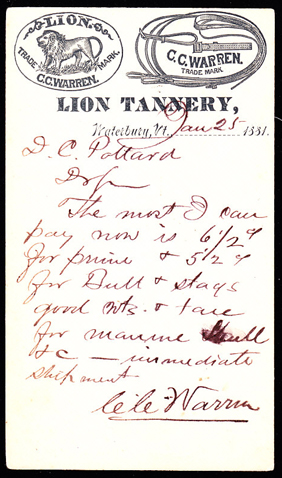 LION.
TRADE MARK.
C.C. WARREN.
C.C. WARREN.
TRADE MARK
LION TANNERY,
Waterbury, Vt. Jan 25 1881.
D. C. Pollard
Dr Sir
The most I can
pay now is 6 1/2 ¢
for prime & 5 1/2 ¢
for Bull & stags
good wts. & tare
for manure
&c — immediate
shipment
C. C. Warren